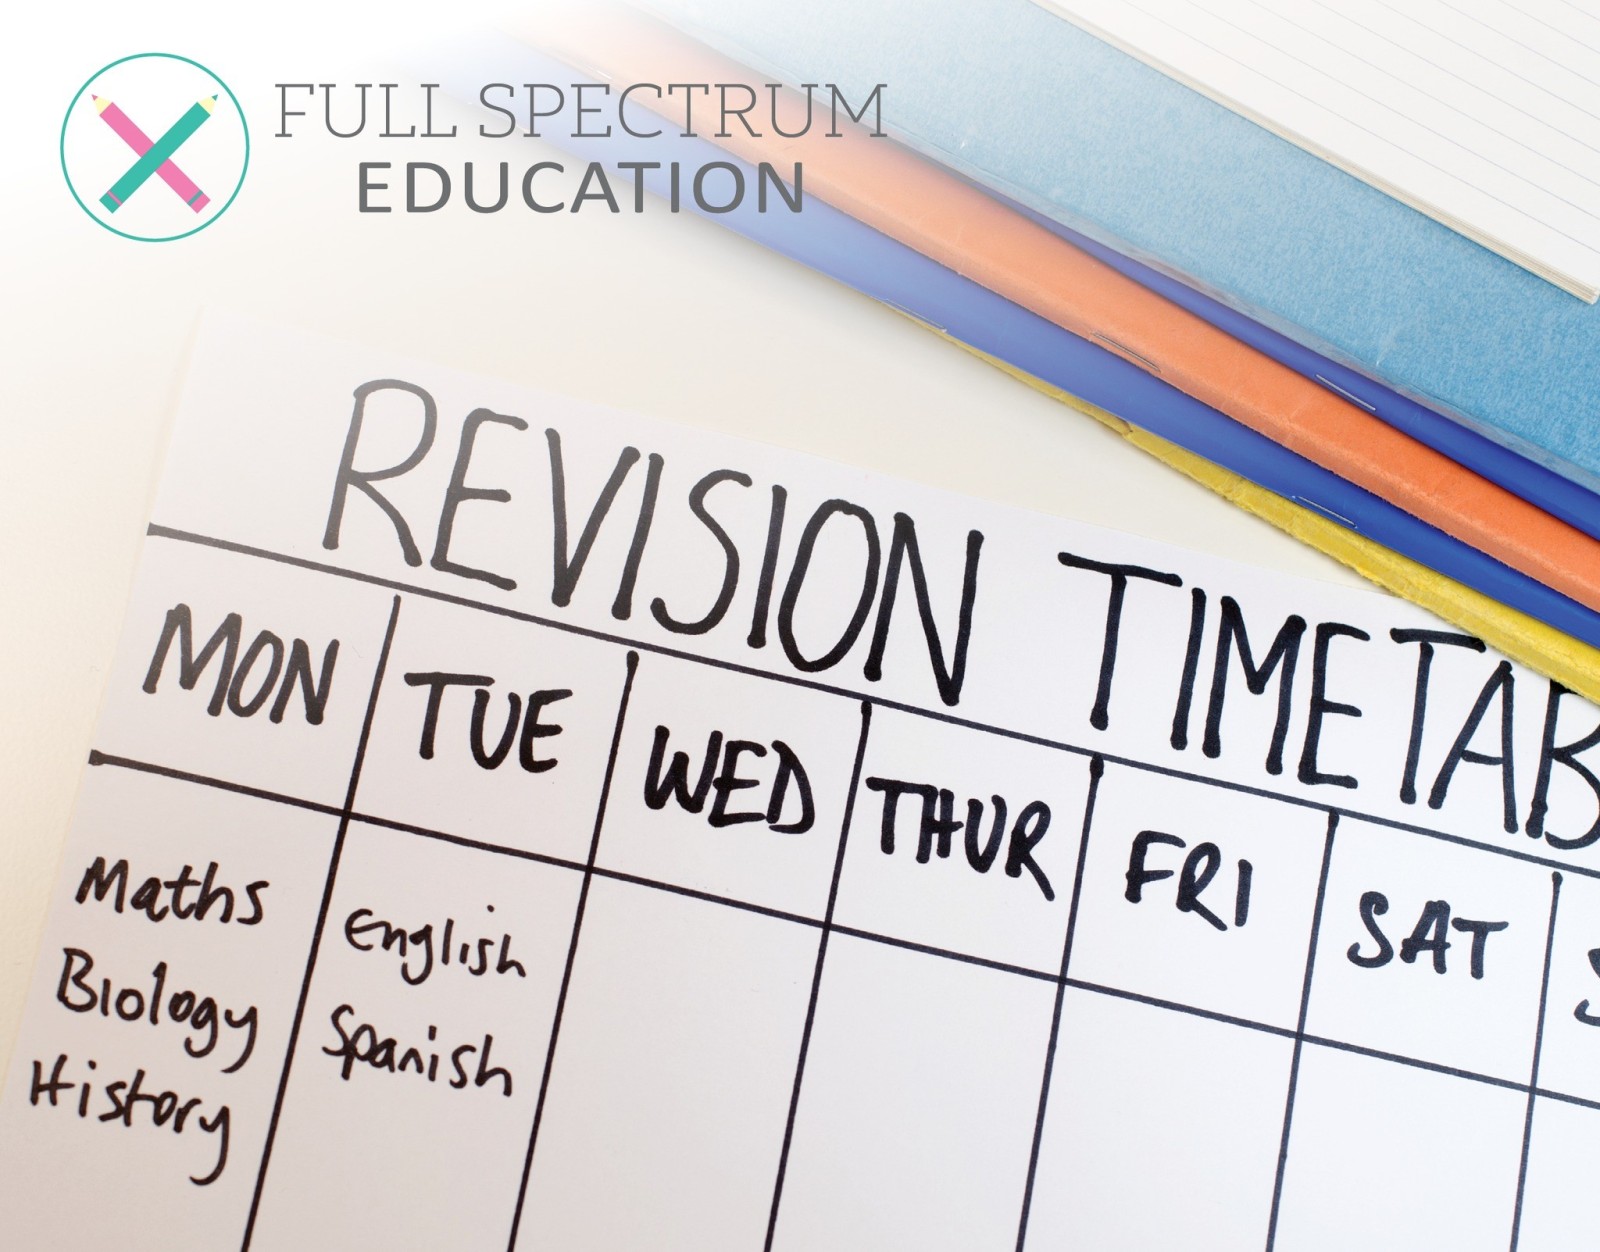 FULL SPECTRUM
EDUCATION
REVISION TIMETAB
MON TUE WED THUR FRI SAT S
Maths
Biology
History
English
Spanish